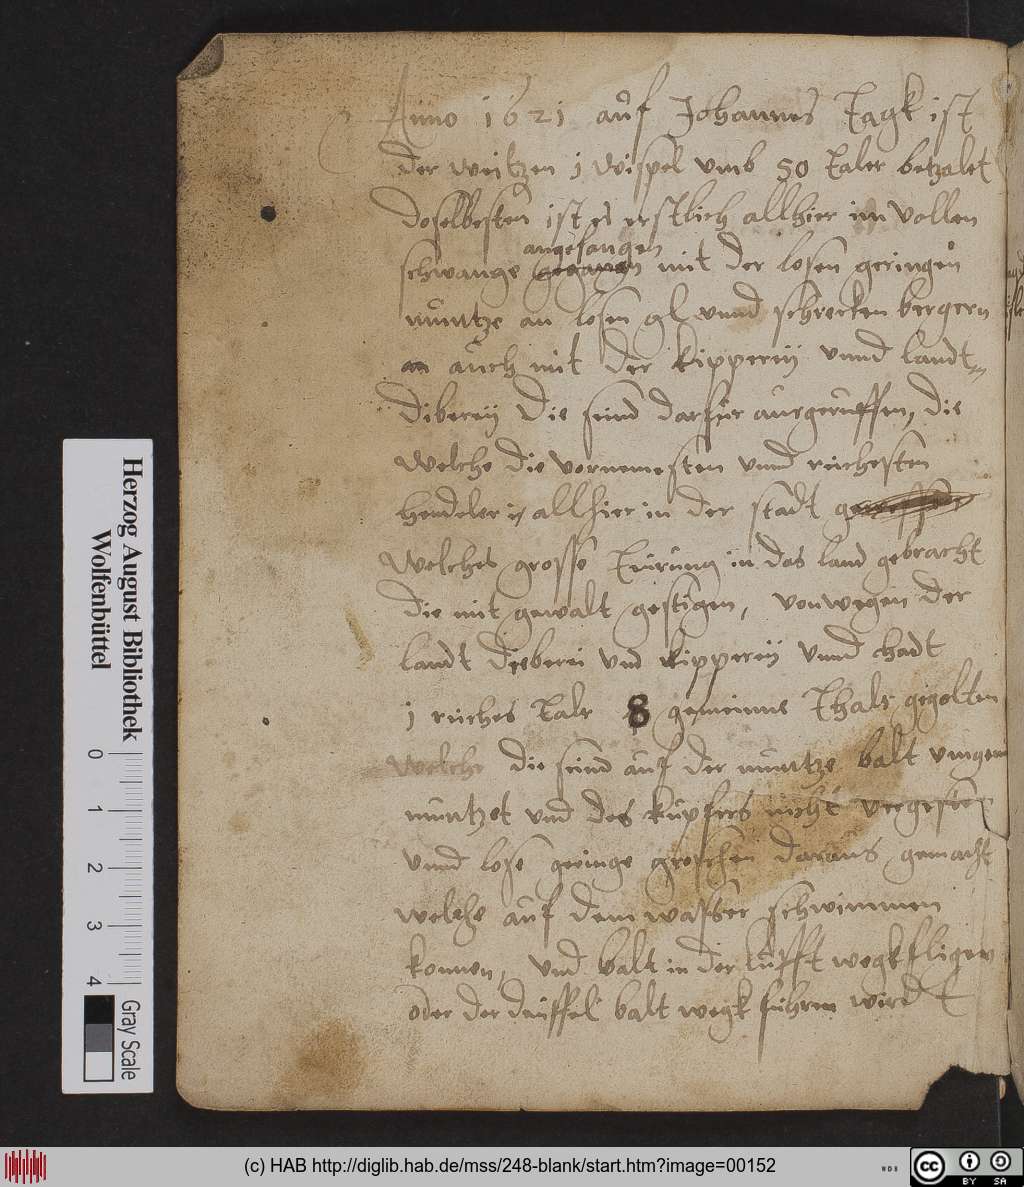 Anno 1621 auf Johannes Tagk ist
der weitzen j wispel vmb 50 taler betzalet
doselbesten ist es erstlich allhier im vollen
angefangen
schwange mit der losen geringen
müntze an losen gl vnnd schrecken bergern
auch mit der kipperey vnnd landt
diberey die seind darfür ausgeruffen, die
welche die vornemesten vnnd reichesten
hendeler allhier in der stadt
welches grosse teurung in das land gebracht
die mit gewalt gestigen, von wegen der
landt dieberei vnd kipperey vnnd hadt
j reiches talr 8 gemeinne thalr gegolten
welche die seind auf der müntze balt vmgem
müntzet vnd des kupfers nicht vergesten
vnnd lose geringe groschen daraus gemacht
welche auf dem wasser schwimmen
konnen, vnd balt in der lufft wegk fligen
oder der deuffel balt wegk fuhren wirdt
Herzog August Bibliothek
Wolfenbüttel
0 1 2 3 4
Gray Scale
(c) HAB http://diglib.hab.de/mss/248-blank/start.htm?image=00152
WDB
cc BY SA